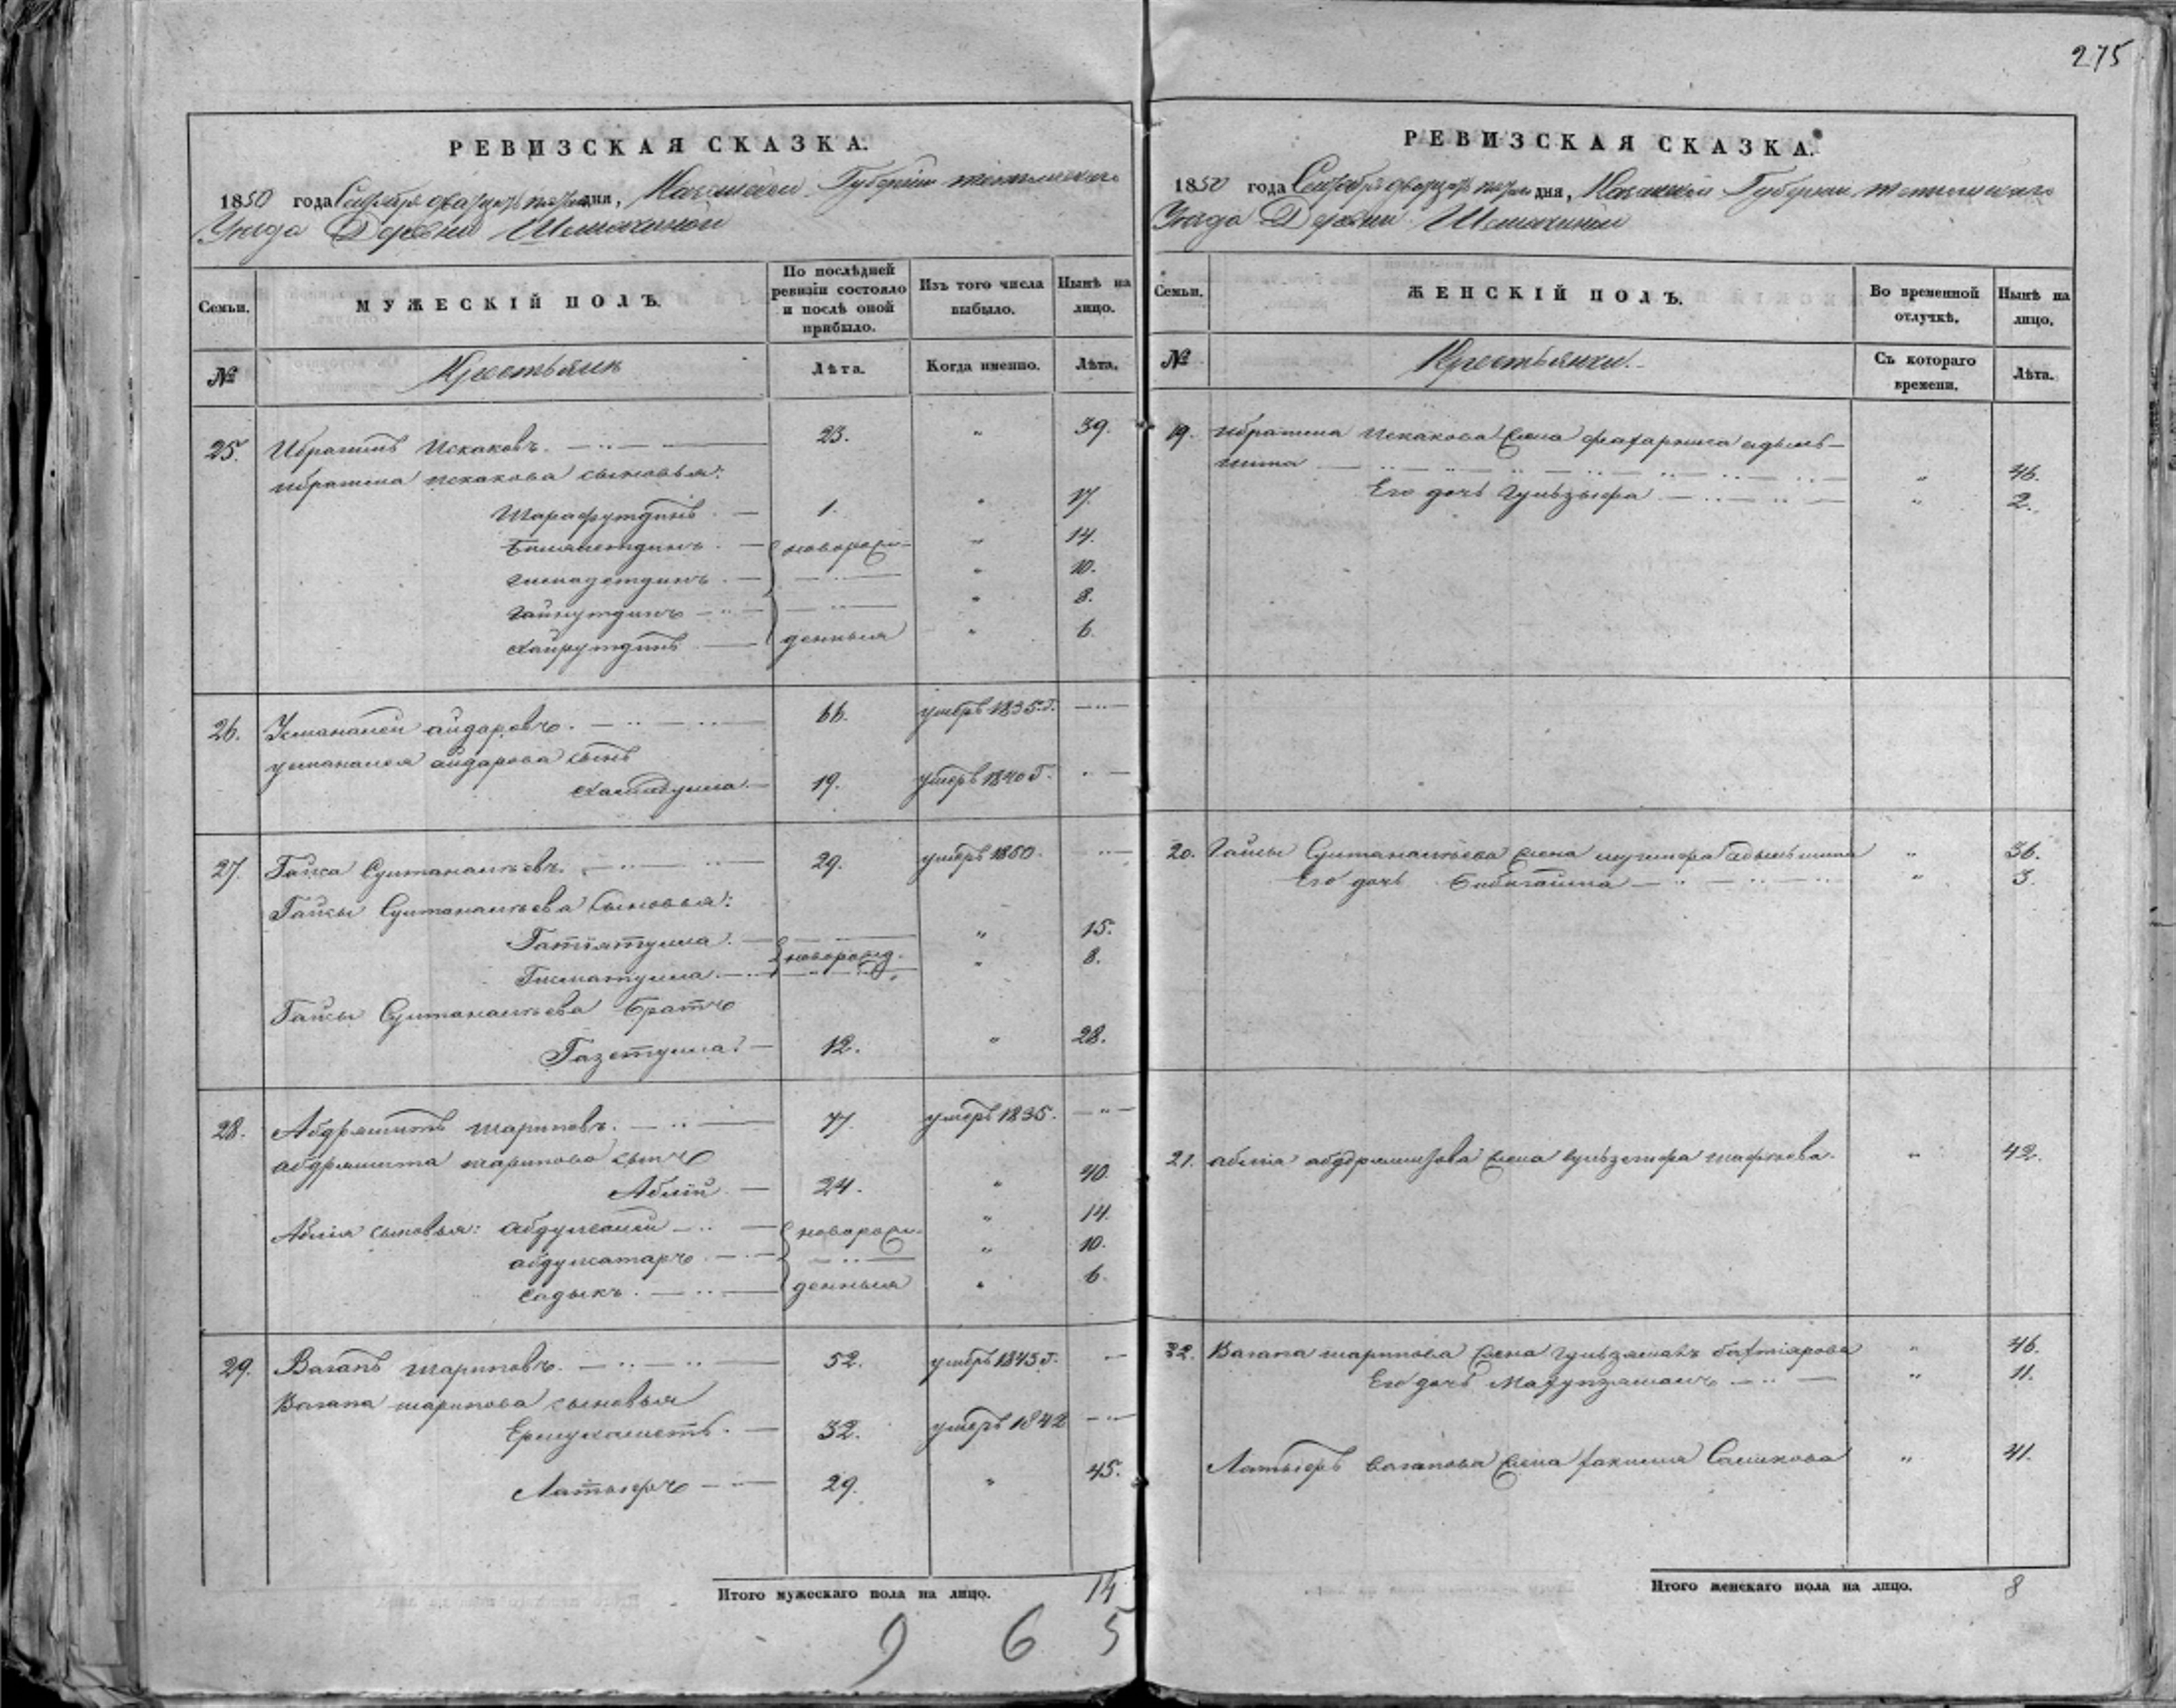 275
РЕВИЗСКАЯ СКАЗКА.
1850 года Сентября дня, Казанской Губернии Тетюшскаго
Уезда Деревни
Семьи. МУЖЕСКІЙ ПОЛЪ. По послѣдней ревизіи состояло и послѣ оной прибыло. Изъ того числа выбыло. Нынѣ на лицо.
№ Крестьяне Лѣта. Когда именно. Лѣта.
25. Ибрагимъ Искаковъ. 23. " 39.
ибрагима искакова сыновья:
Шарафутдинъ 1. " 17.
новорож- " 14.
" 10.
Гайнутдинъ " 8.
Хайрутдинъ денныя " 6.
26. Усманалей айдаровъ. 66. умеръ 1835.г.
усманалея айдарова сынъ
19. умеръ 1840 г.
27. Гайса Султаналѣевъ. 29. умеръ 1850.
Гайсы Султаналѣева сыновья:
Гатіятулла. " 15.
Гисматулла. новорожд. " 8.
Гайсы Султаналѣева братъ
Газетулла. 12. " 28.
28. Абдряшитъ шариповъ. 77. умеръ 1835.
абдряшита шарипова сынъ
Аблій 24. " 40.
Аблія сыновья: новорож- " 14.
абдулсатаръ " 10.
садыкъ. денныя " 6.
29. Вагапъ шариповъ. 52. умеръ 1845 г.
Вагапа шарипова сыновья
Ермухаметъ. 32. умеръ 1842
Латыеръ 29. " 45.
Итого мужескаго пола на лицо. 14
9 6 5
РЕВИЗСКАЯ СКАЗКА.
1850 года Сентября дня, Казанской Губернии Тетюшскаго
Уезда Деревни
Семьи. ЖЕНСКІЙ ПОЛЪ. Во временной отлучкѣ. Нынѣ на лицо.
№ Крестьянки. Съ котораго времени. Лѣта.
19. ибрагима искакова жена
" 46.
Его дочь Гульзыфа " 2.
20. Гайсы Султаналѣева жена " 36.
Его дочь " 3.
21. аблія абдряшитова жена " 42.
22. Вагапа шарипова жена " 46.
Его дочь " 11.
Латыеръ вагапова жена " 41.
Итого женскаго пола на лицо. 8